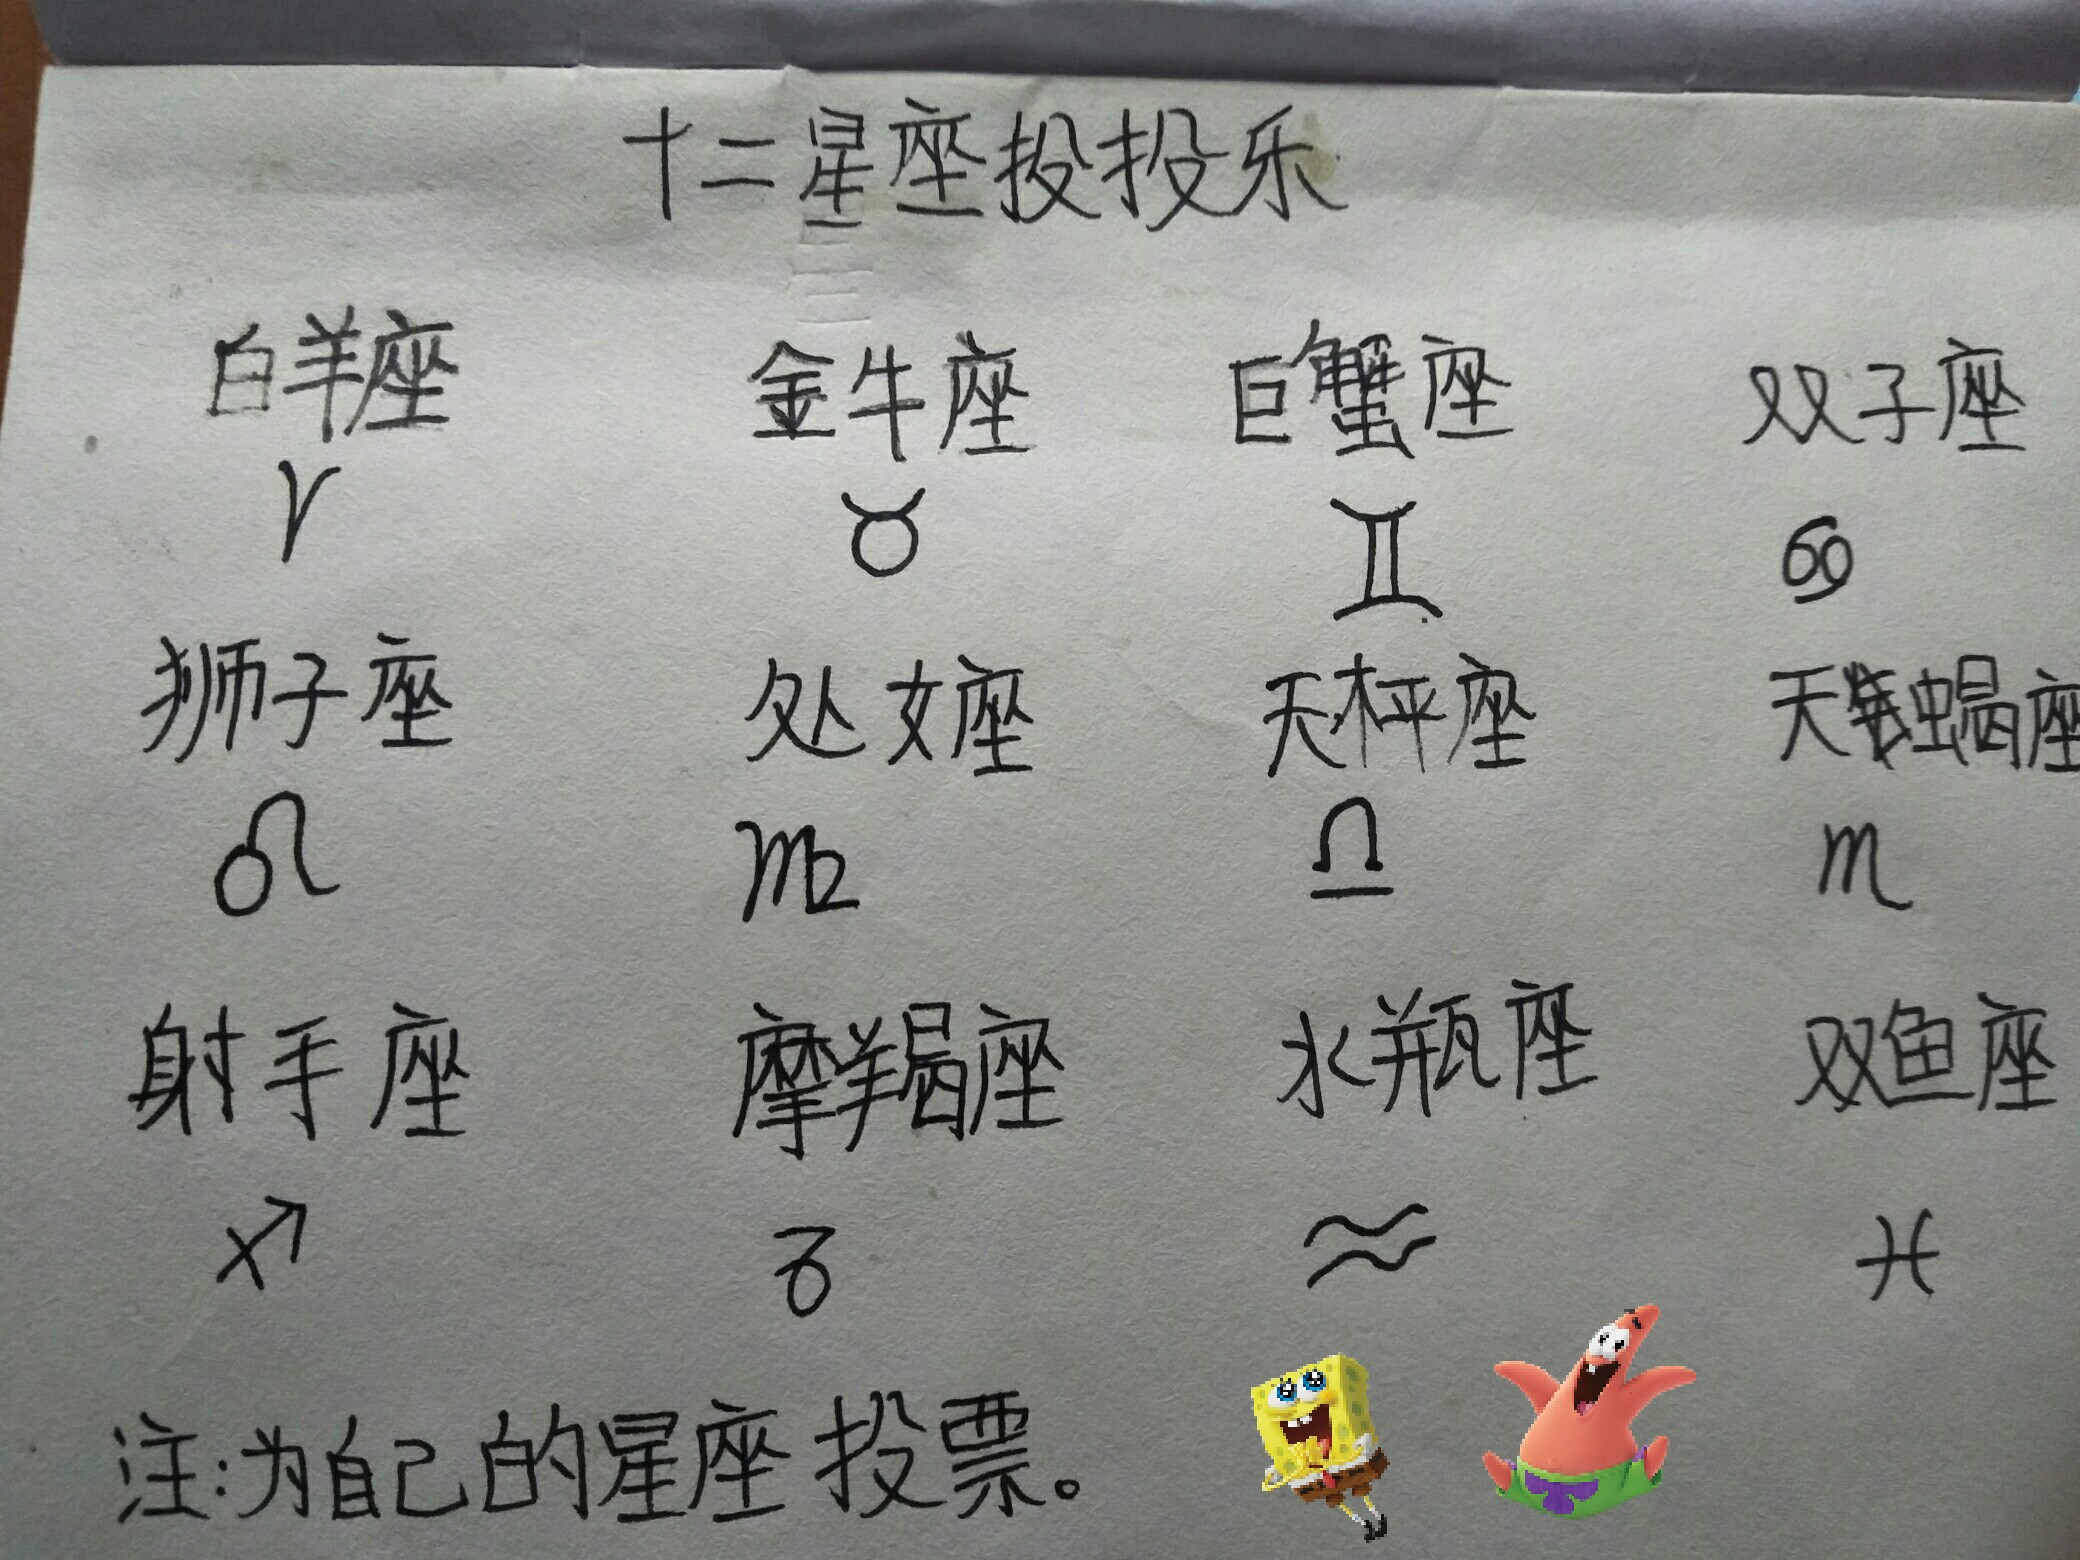 十二星座投投乐
白羊座 金牛座 巨蟹座 双子座
♈ ♉ ♊ ♋
狮子座 处女座 天秤座 天蝎座
♌ ♍ ♎ ♏
射手座 摩羯座 水瓶座 双鱼座
♐ ♑ ♒ ♓
注:为自己的星座投票。